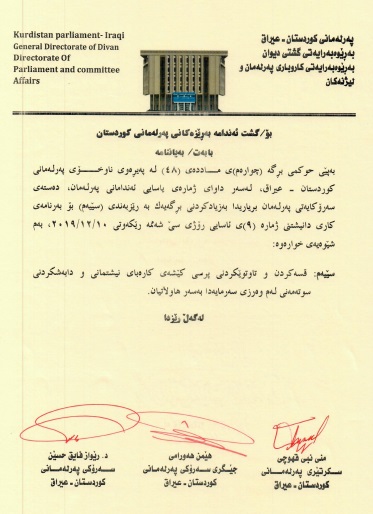 Kurdistan parliament- Iraqi
General Directorate of Divan
Directorate Of
Parliament and committee
Affairs
پەرلەمانی کوردستان - عیراق
بەڕێوەبەرایەتی گشتی دیوان
بەڕێوەبەرایەتی کاروباری پەرلەمان و
لیژنەکان
بۆ/ گشت ئەندامە بەڕێزەکانی پەرلەمانی کوردستان
بابەت/ بەیاننامە
بەپێی حوکمی برگە (چوارەم)ی ماددەی (٤٨) لە پەیڕەوی ناوخۆی پەرلەمانی
کوردستان - عیراق، لەسەر داوای ژمارەی یاسایی ئەندامانی پەرلەمان، دەستەی
سەرۆکایەتی پەرلەمان بڕیاریدا بەزیادکردنی برگەیەك بە ڕێزبەندی (سێیەم) بۆ بەرنامەی
کاری دانیشتنی ژمارە (٩)ی ئاسایی رۆژی سێ شەممە رێکەوتی ٢٠١٩/١٢/١٠، بەم
شێوەیەی خوارەوە:
سێیەم: قسەکردن و تاوتوێکردنی پرسی کێشەی کارەبای نیشتمانی و دابەشکردنی
سوتەمەنی لەم وەرزی سەرمایەدا بەسەر هاولاتیان.
لەگەڵ رێزدا
منی نبی قهوچی
سکرتێری پەرلەمانی
کوردستان - عیراق
هێمن هەورامی
جێگری سەرۆکی پەرلەمانی
کوردستان - عیراق
د. رێواز فایق حسێن
سەرۆکی پەرلەمانی
کوردستان - عیراق